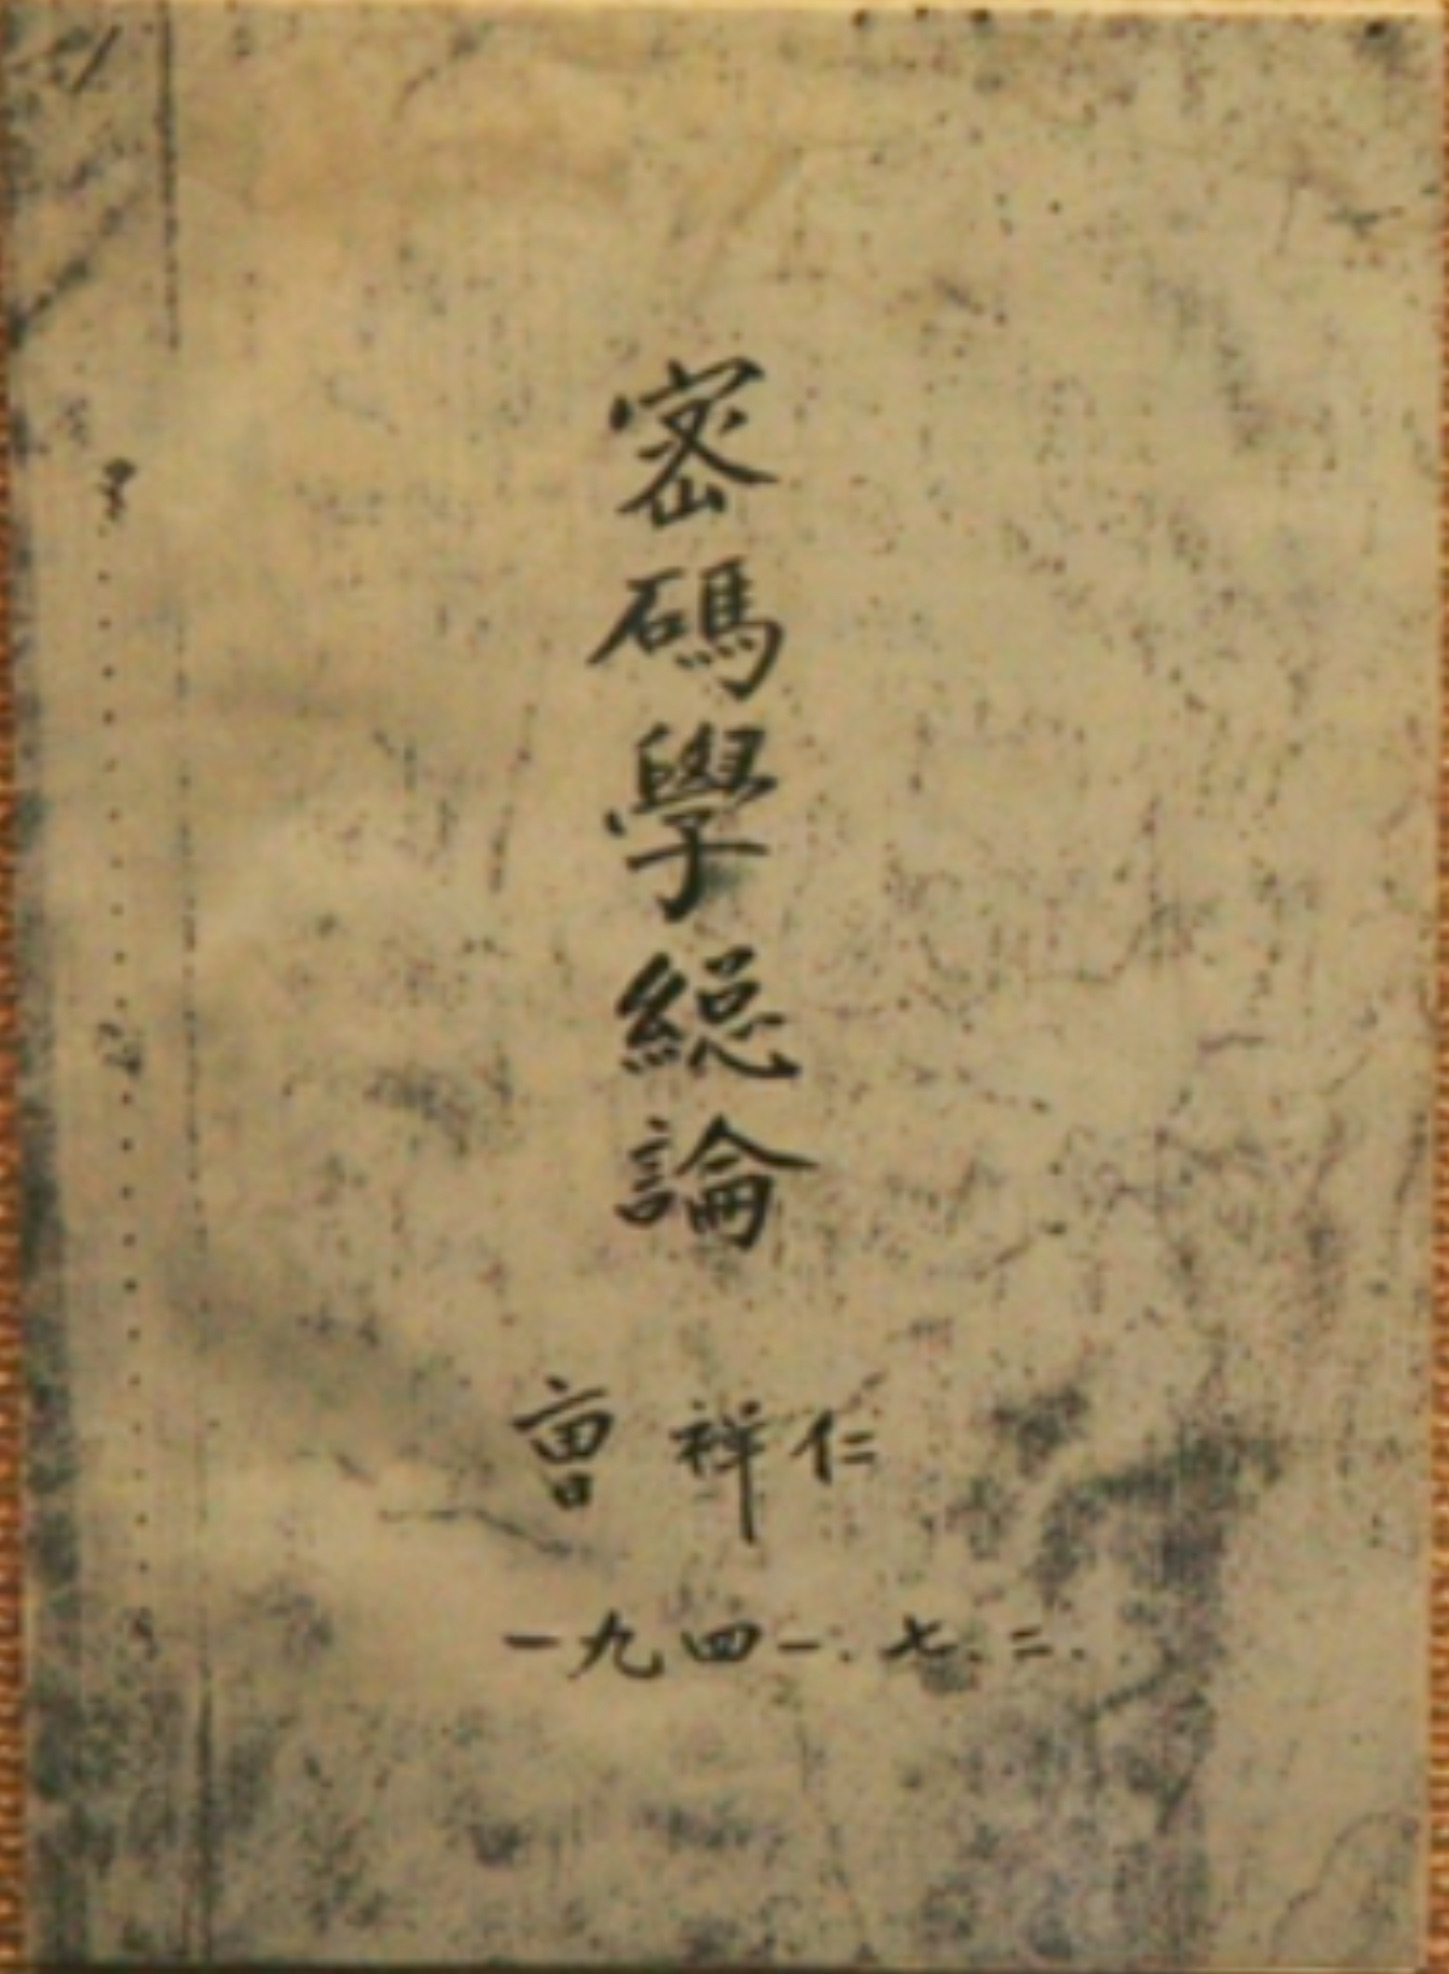 密碼學總論
曾祥仁
一九四一.七.二.